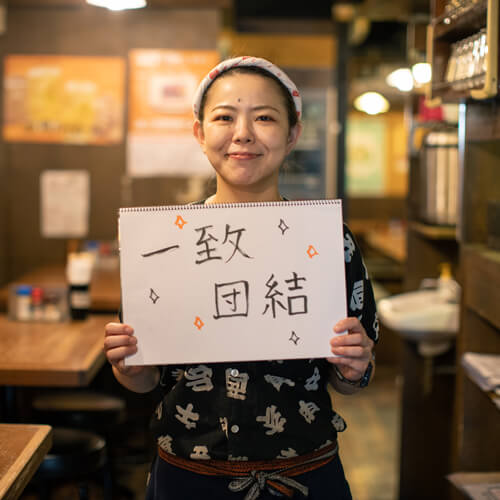 一致
団結